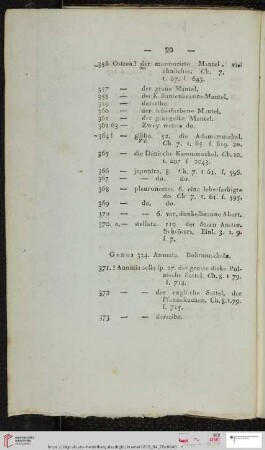 — 20 —
356 Ostrea? der marmorirte Mantel, viel
ähnliches. Ch. 7.
t. 67. f 643.
357 — der graue Mantel.
358 — der Kastanienbraune Mantel.
359 — derselbe.
360 — der leberfarbene Mantel.
361 — der orangelbe Mantel.
362 63 — Zwey weisse do.
364 — gibba. 52. die Adamsmuschel.
Ch 7. t. 65. f 619. 20.
365 — die Dänische Kammmuschel. Ch. 10.
t. 207 f 2043.
366 — japonica. 8. Ch. 7. t 62. f 596.
367 — do. do.
368 — pleuronectes. 6. eine leberfarbigte
do. Ch 7. t. 61. f 595.
369 — do. do.
370 — 6. var. dunkelbraune Abart.
370. a. — stellata. 119 der Stern Auster.
Schröters. Einl. 3. t. 9.
f 7.
Genus 324. Anomia. Bohrmuscheln.
371. ? Anomia sella sp. 27. der grosse dicke Pol-
nische Sattel. Ch. 8. t 79.
f. 714.
372 — der englische Sattel, der
Pfannekuchen. Ch. 8. t. 79.
f. 715.
373 — — derselbe.